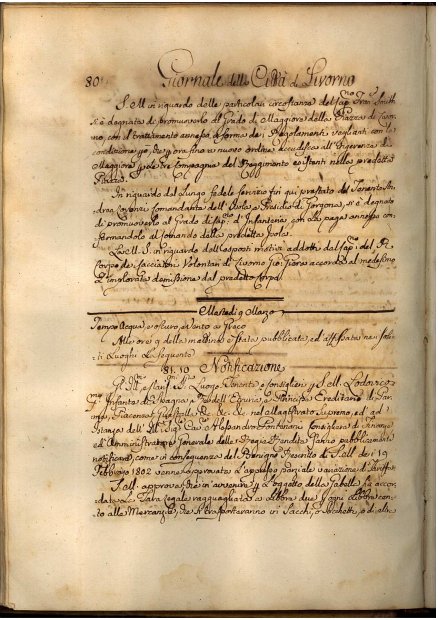 80 Giornale della Città di Livorno
S. M. in riguardo delle particolari circostanze del Cap.no Fran. Smith
si è degnata di promuoverlo al Grado di Maggiore della Piazza di Livor-
no, con il trattamento annesso a forma dei Regolamenti veglianti con la
condizione
Maggiore, Compagnia del Reggimento esistenti nella predetta
Piazza
In riguardo del lungo fedele servizio fin qui prestato dal Tenente An-
drea Comandante dell'Isola e Presidio di Gorgona, si è degnato
di promuoverlo al Grado di Cap.no d'Infanteria con la paga annessa con-
fermandolo al comando della predetta Isola.
La R. M. S. in riguardo dell'esposti motivi addotti dal Cap.no del R.
Corpo dei Cacciatori Volontari di Livorno Gio: accorda al medesimo
l'implorata demissione dal predetto Corpo.
Martedì 9 Marzo
Tempo Acqua, e oscuro Vento a
Alle ore 9 della medesima è stata pubblicata, ed affissata nei soli-
ti Luoghi la seguente
81. 10 Notificazione
Gl' Ill.mi Luogo Tenente e Consiglieri di S. M. Lodovico P.
mo Infante di Spagna, Re dell'Etruria, e Principe Ereditario di Par-
ma, Piacenza, Guastalla &c. &c. &c. nel Magistrato Supremo, ed ad
Istanza dell'Ill. Sig. Alessandro Pontenani Consigliere di Finanze
ed Amministratore Generale delle Regie Rendite fanno pubblicamente
notificare, come in conseguenza del Benigno Rescritto di S. M. dei 19
Febbraio 1802 venne approvata l'apposta parziale variazione di Tariffa
S. M. approva che in avvenire per l'oggetto della Gabella sia accor-
data la Tara legale ragguagliata a Libbre due per ogni Libbre cen-
to alle Mercanzie, che si trasporteranno in Sacchi, o Sacchetti, o di altre